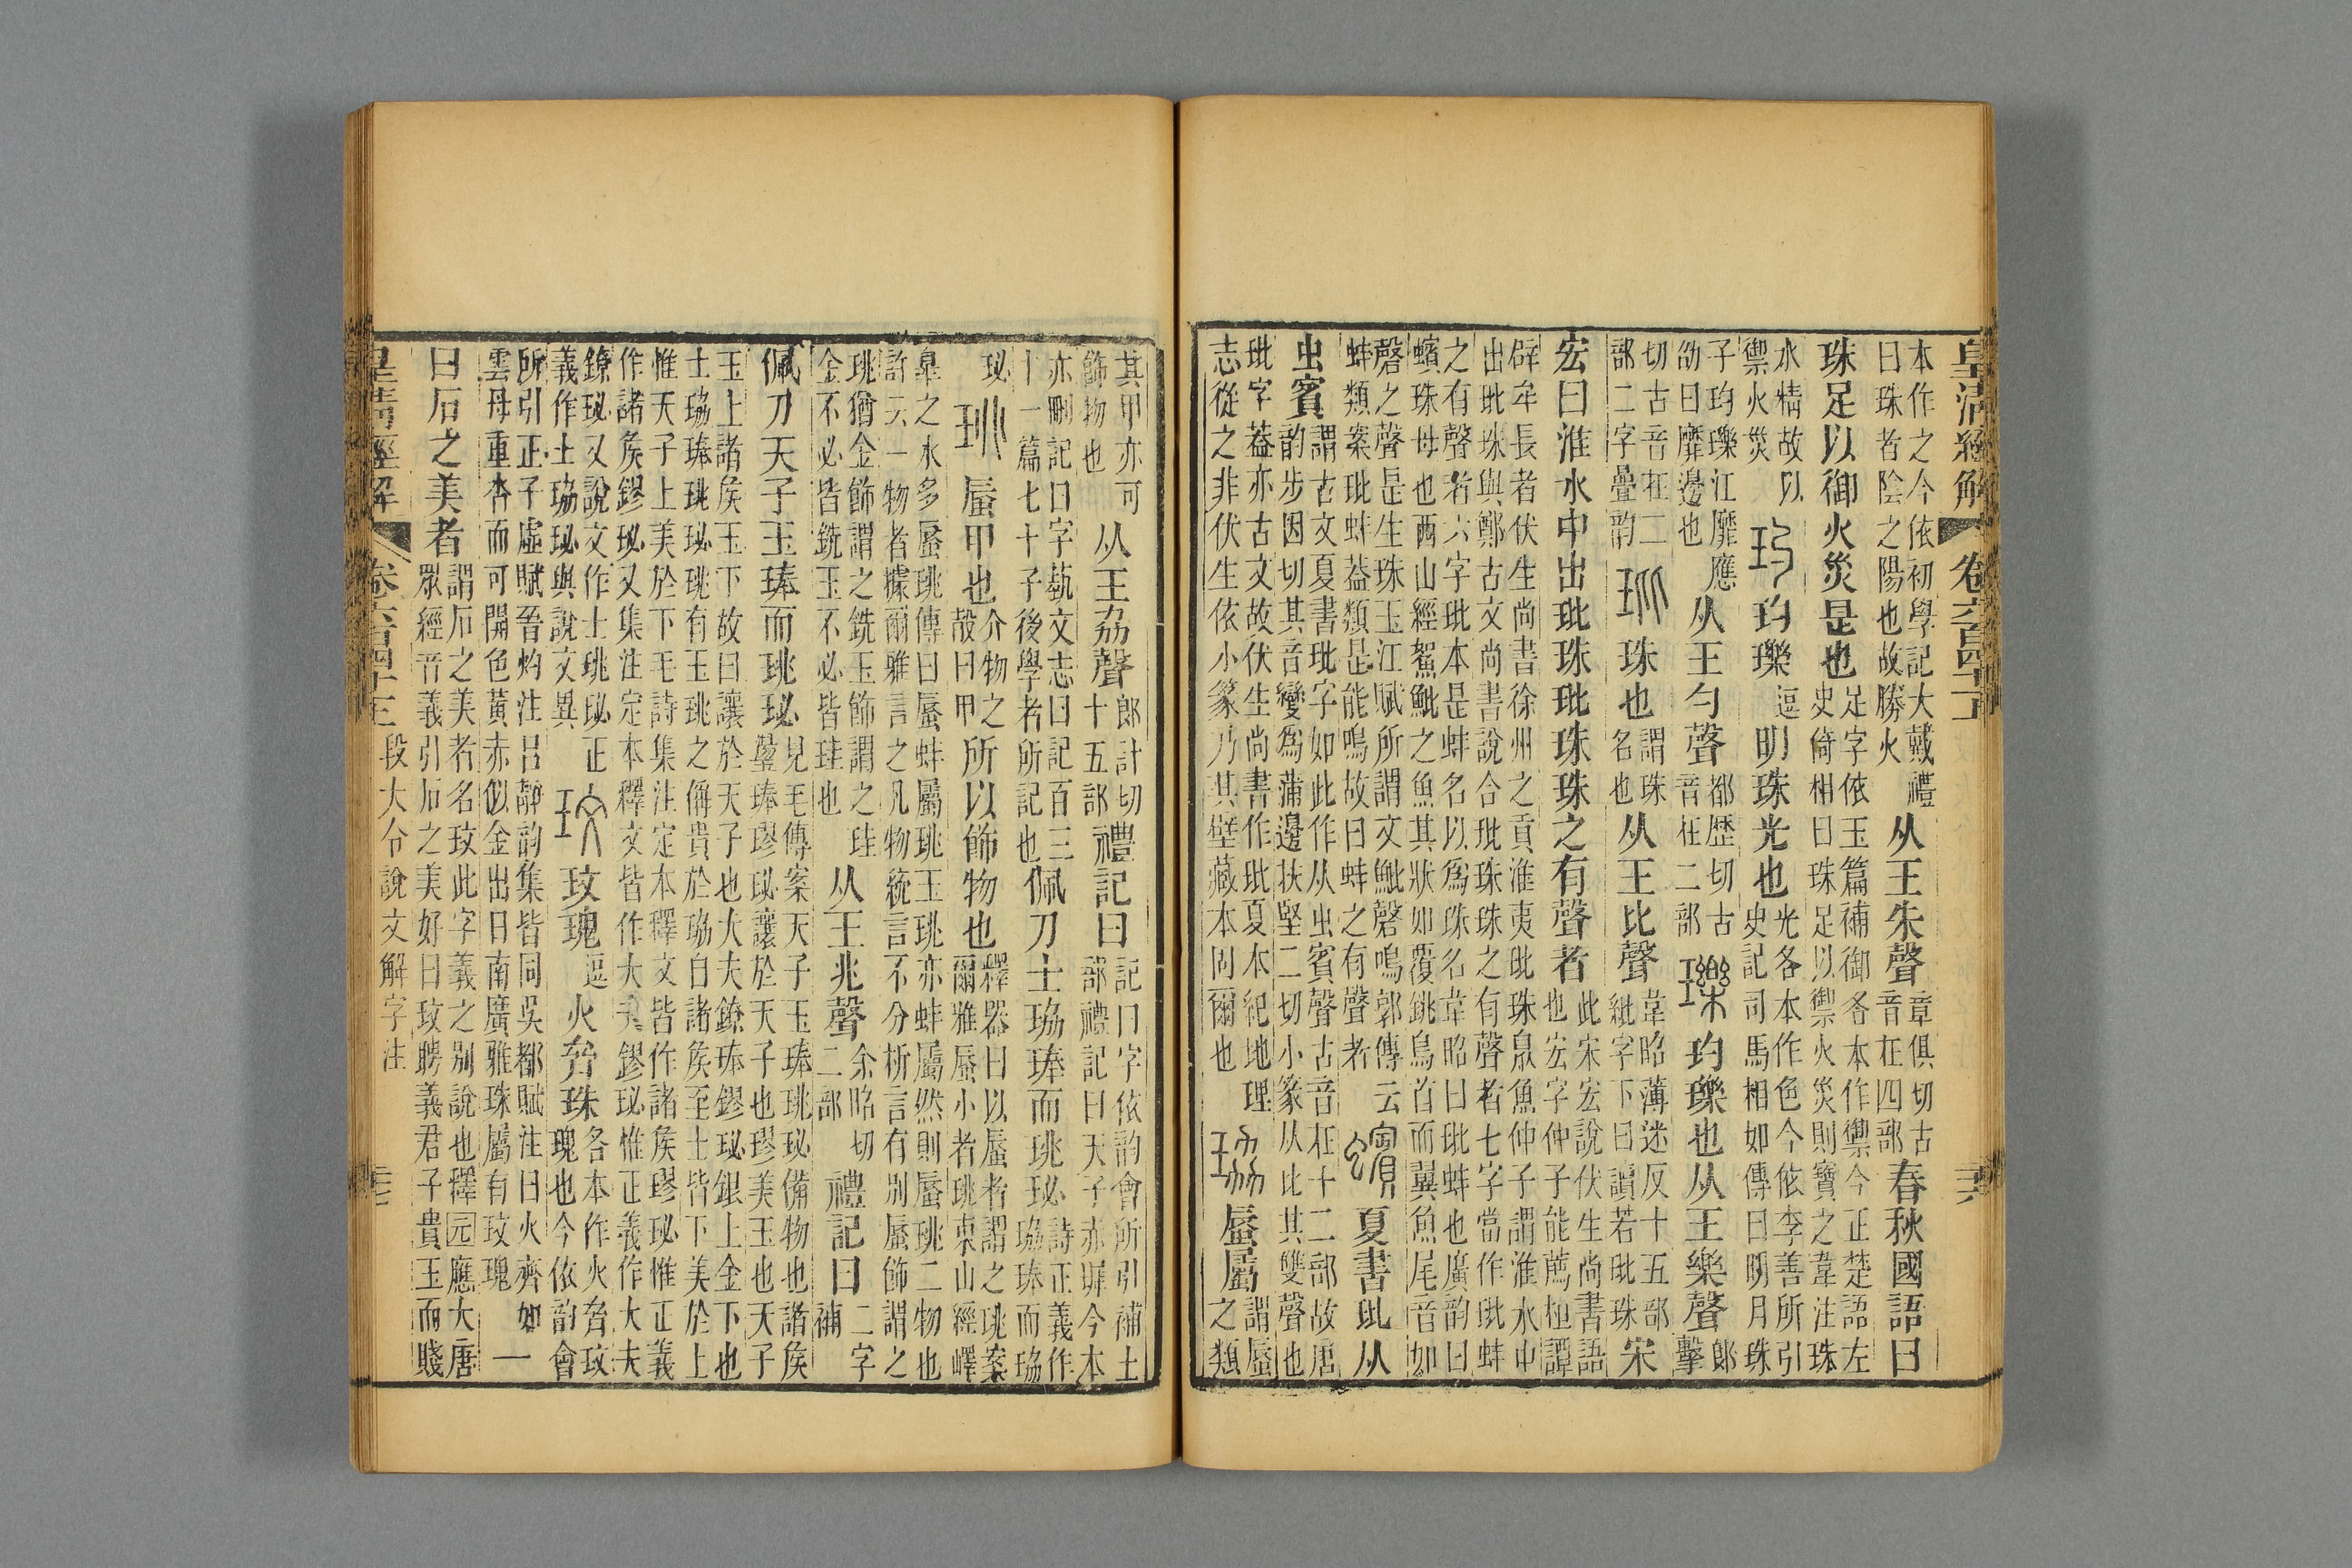 皇清經解 卷六百四十一 卅六
本作之今依初學記大戴禮曰珠者陰之陽也故勝火 从王朱聲 章俱切古音在四部 春秋國語曰
珠足以御火災是也 足字依玉篇補御各本作禦今正楚語左史倚相曰珠足以禦火災則寶之韋注珠
水精故以禦火災 玓 玓瓅 逗 明珠光也 光各本作色今依李善所引史記司馬相如傳曰明月珠
子玓瓅江靡應劭曰靡邊也 从王勺聲 都歷切古音在二部 瓅 玓瓅也从王樂聲 郎擊
切古音在二部二字疊韵 玭 珠也 謂珠名也 从王比聲 韋昭薄迷反十五部紕字下曰讀若玭珠 宋
宏曰淮水中出玭珠玭珠珠之有聲者 此宋宏說伏生尚書語也宏字仲子能薦桓譚
辟牟長者伏生尚書徐州之貢淮夷玭珠臮魚仲子謂淮水中出玭珠與鄭古文尚書說合玭珠珠之有聲者七字當作玭蚌
之有聲者六字玭本是蚌名以爲珠名韋昭曰玭蚌也廣韵曰蠙珠母也西山經鴽魮之魚其狀如覆銚鳥首而翼魚尾音如
磬之聲是生珠玉江賦所謂文魮磬鳴郭傳云蚌類案玭蚌葢類是能鳴故曰蚌之有聲者 蠙 夏書玭从
虫賓 謂古文夏書玭字如此作从虫賓聲古音在十二部故唐韵步因切其音變爲蒲邊扶堅二切小篆从比其雙聲也
玭字葢亦古文故伏生尚書作玭夏本紀地理志從之非伏生依小篆乃其壁藏本固爾也 珕 蜃屬 謂蜃之類
其甲亦可飾物也 从王劦聲 郎計切十五部 禮記曰 記曰字依韵會所引補土部禮記曰天子赤墀今本
亦刪記曰字藝文志曰記百三十一篇七十子後學者所記也 佩刀士珕琫而珧珌 詩正義作珕琫而珕
珌 珧 蜃甲也 介物之殼曰甲 所以飾物也 釋器曰以蜃者謂之珧案爾雅蜃小者珧東山經嶧
皐之水多蜃珧傳曰蜃蚌屬珧玉珧亦蚌屬然則蜃珧二物也許云一物者據爾雅言之凡物統言不分析言有別蜃飾謂之
珧猶金飾謂之銑玉飾謂之珪金不必皆銑玉不必皆珪也 从王兆聲 余昭切二部 禮記曰 二字補
佩刀天子玉琫而珧珌 見毛傳案天子玉琫珧珌備物也諸矦璗琫璆珌讓於天子也璆美玉也天子
玉上諸矦玉下故曰讓於天子也大夫鐐琫鏐珌銀上金下也士珕琫珧珌珧有玉珧之偁貴於珕自諸矦至士皆下美於上
惟天子上美於下毛詩集注定本釋文皆作諸矦璆珌惟正義作諸矦鏐珌又集注定本釋文皆作大夫鏐珌惟正義作大夫
鐐珌又說文作士珧珌正義作士珕珌與說文異 玟 玟瑰 逗 火齊珠 各本作火齊玟瑰也今依韵會
所引正子虛賦晉灼注呂靜韵集皆同吳都賦注曰火齊如雲母重沓而可開色黃赤似金出日南廣雅珠屬有玟瑰 一
曰石之美者 謂石之美者名玟此字義之別說也釋元應大唐眾經音義引石之美好曰玟聘義君子貴玉而賤
皇清經解 段大令說文解字注